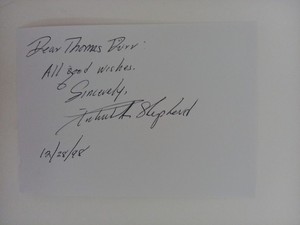 Dear Thomas Burr:
All good wishes.
Sincerely,
Shepherd
12/28/98